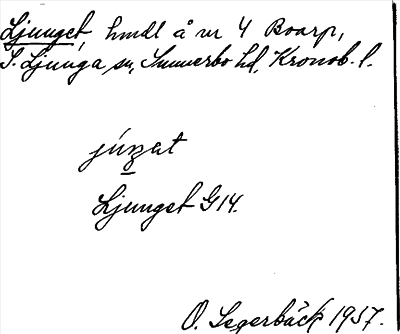 Ljunget, hmdl å nr 4 Boarp,
S. Ljunga sn, Sunnerbo hd, Kronob. l.
júŋat
Ljunget G14.
O. Segerbäck 1957.